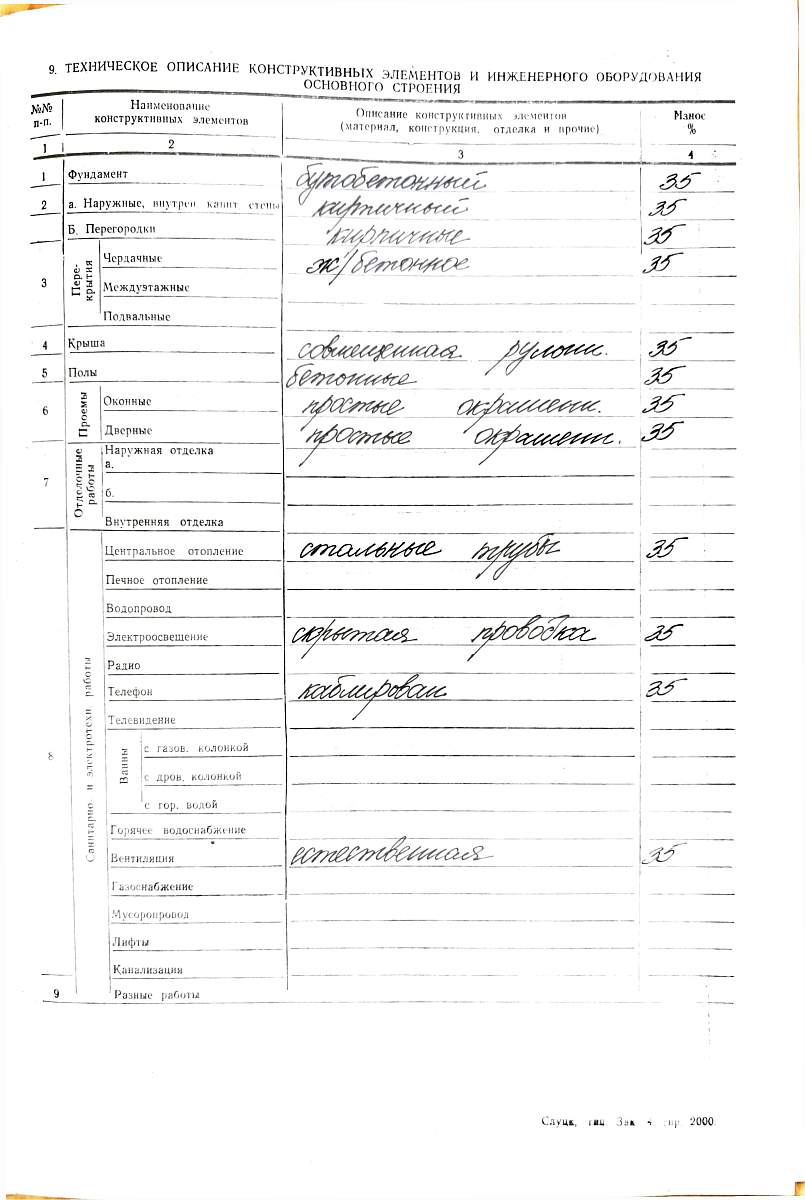 9. ТЕХНИЧЕСКОЕ ОПИСАНИЕ КОНСТРУКТИВНЫХ ЭЛЕМЕНТОВ И ИНЖЕНЕРНОГО ОБОРУДОВАНИЯ
ОСНОВНОГО СТРОЕНИЯ
№№ п-п. Наименование конструктивных элементов Описание конструктивных элементов (материал, конструкция, отделка и прочие) Износ %
1 2 3 4
1 Фундамент бутобетонный 35
2 а. Наружные, внутрен капит стены кирпичный 35
Б. Перегородки кирпичные 35
3 Пере-крытия Чердачные ж/бетонное 35
Междуэтажные
Подвальные
4 Крыша совмещенная рулонн. 35
5 Полы бетонные 35
6 Проемы Оконные простые окрашенн. 35
Дверные простые окрашенн. 35
7 Отделочные работы Наружная отделка
а.
б.
Внутренняя отделка
8 Санитарно и электротехн работы Центральное отопление стальные трубы 35
Печное отопление
Водопровод
Электроосвещение скрытая проводка 35
Радио
Телефон каблирован 35
Телевидение
Ванны с газов. колонкой
с дров. колонкой
с гор. водой
Горячее водоснабжение
Вентиляция естественная 35
Газоснабжение
Мусоропровод
Лифты
Канализация
9 Разные работы
Слуцк, тип. Зак. 2000